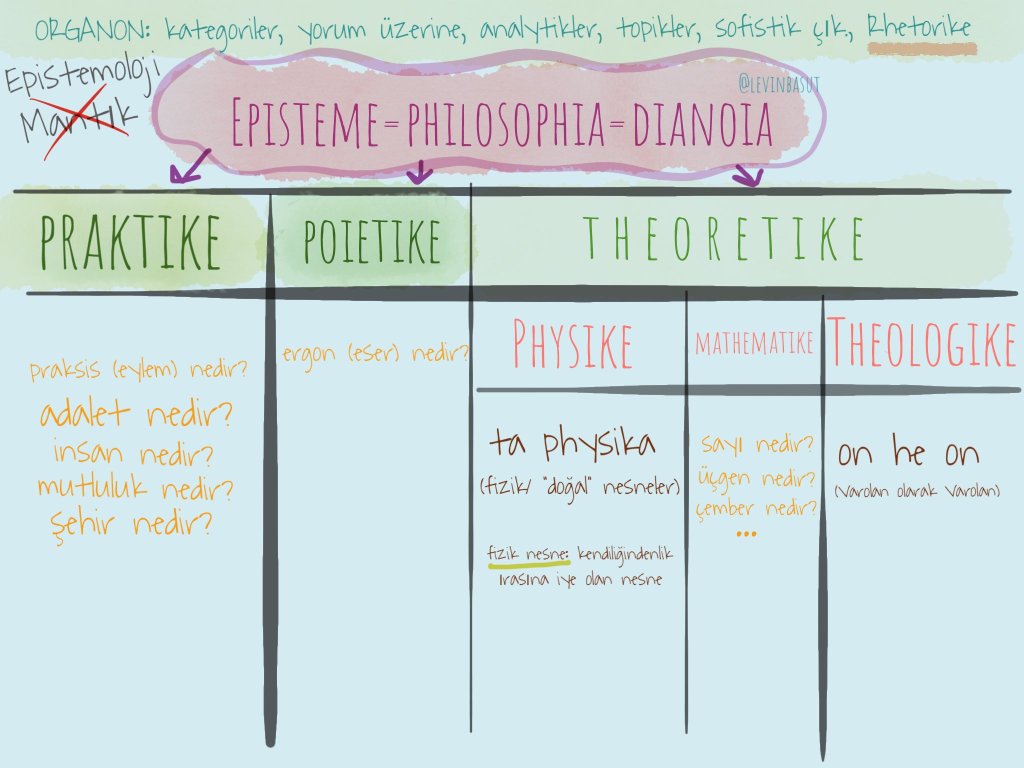 ORGANON: kategoriler, yorum üzerine, analytikler, topikler, sofistik çık., Rhetorike
Epistemoloji
Mantık
@LEVINBASUT
EPISTEME=PHILOSOPHIA=DIANOIA
PRAKTIKE
POIETIKE
THEORETIKE
PHYSIKE
MATHEMATIKE
THEOLOGIKE
praksis (eylem) nedir?
adalet nedir?
insan nedir?
mutluluk nedir?
şehir nedir?
ergon (eser) nedir?
ta physika
(fizik/ "doğal" nesneler)
fizik nesne: kendiliğindenlik
ırasına iye olan nesne
sayı nedir?
üçgen nedir?
çember nedir?
...
on he on
(Varolan olarak Varolan)